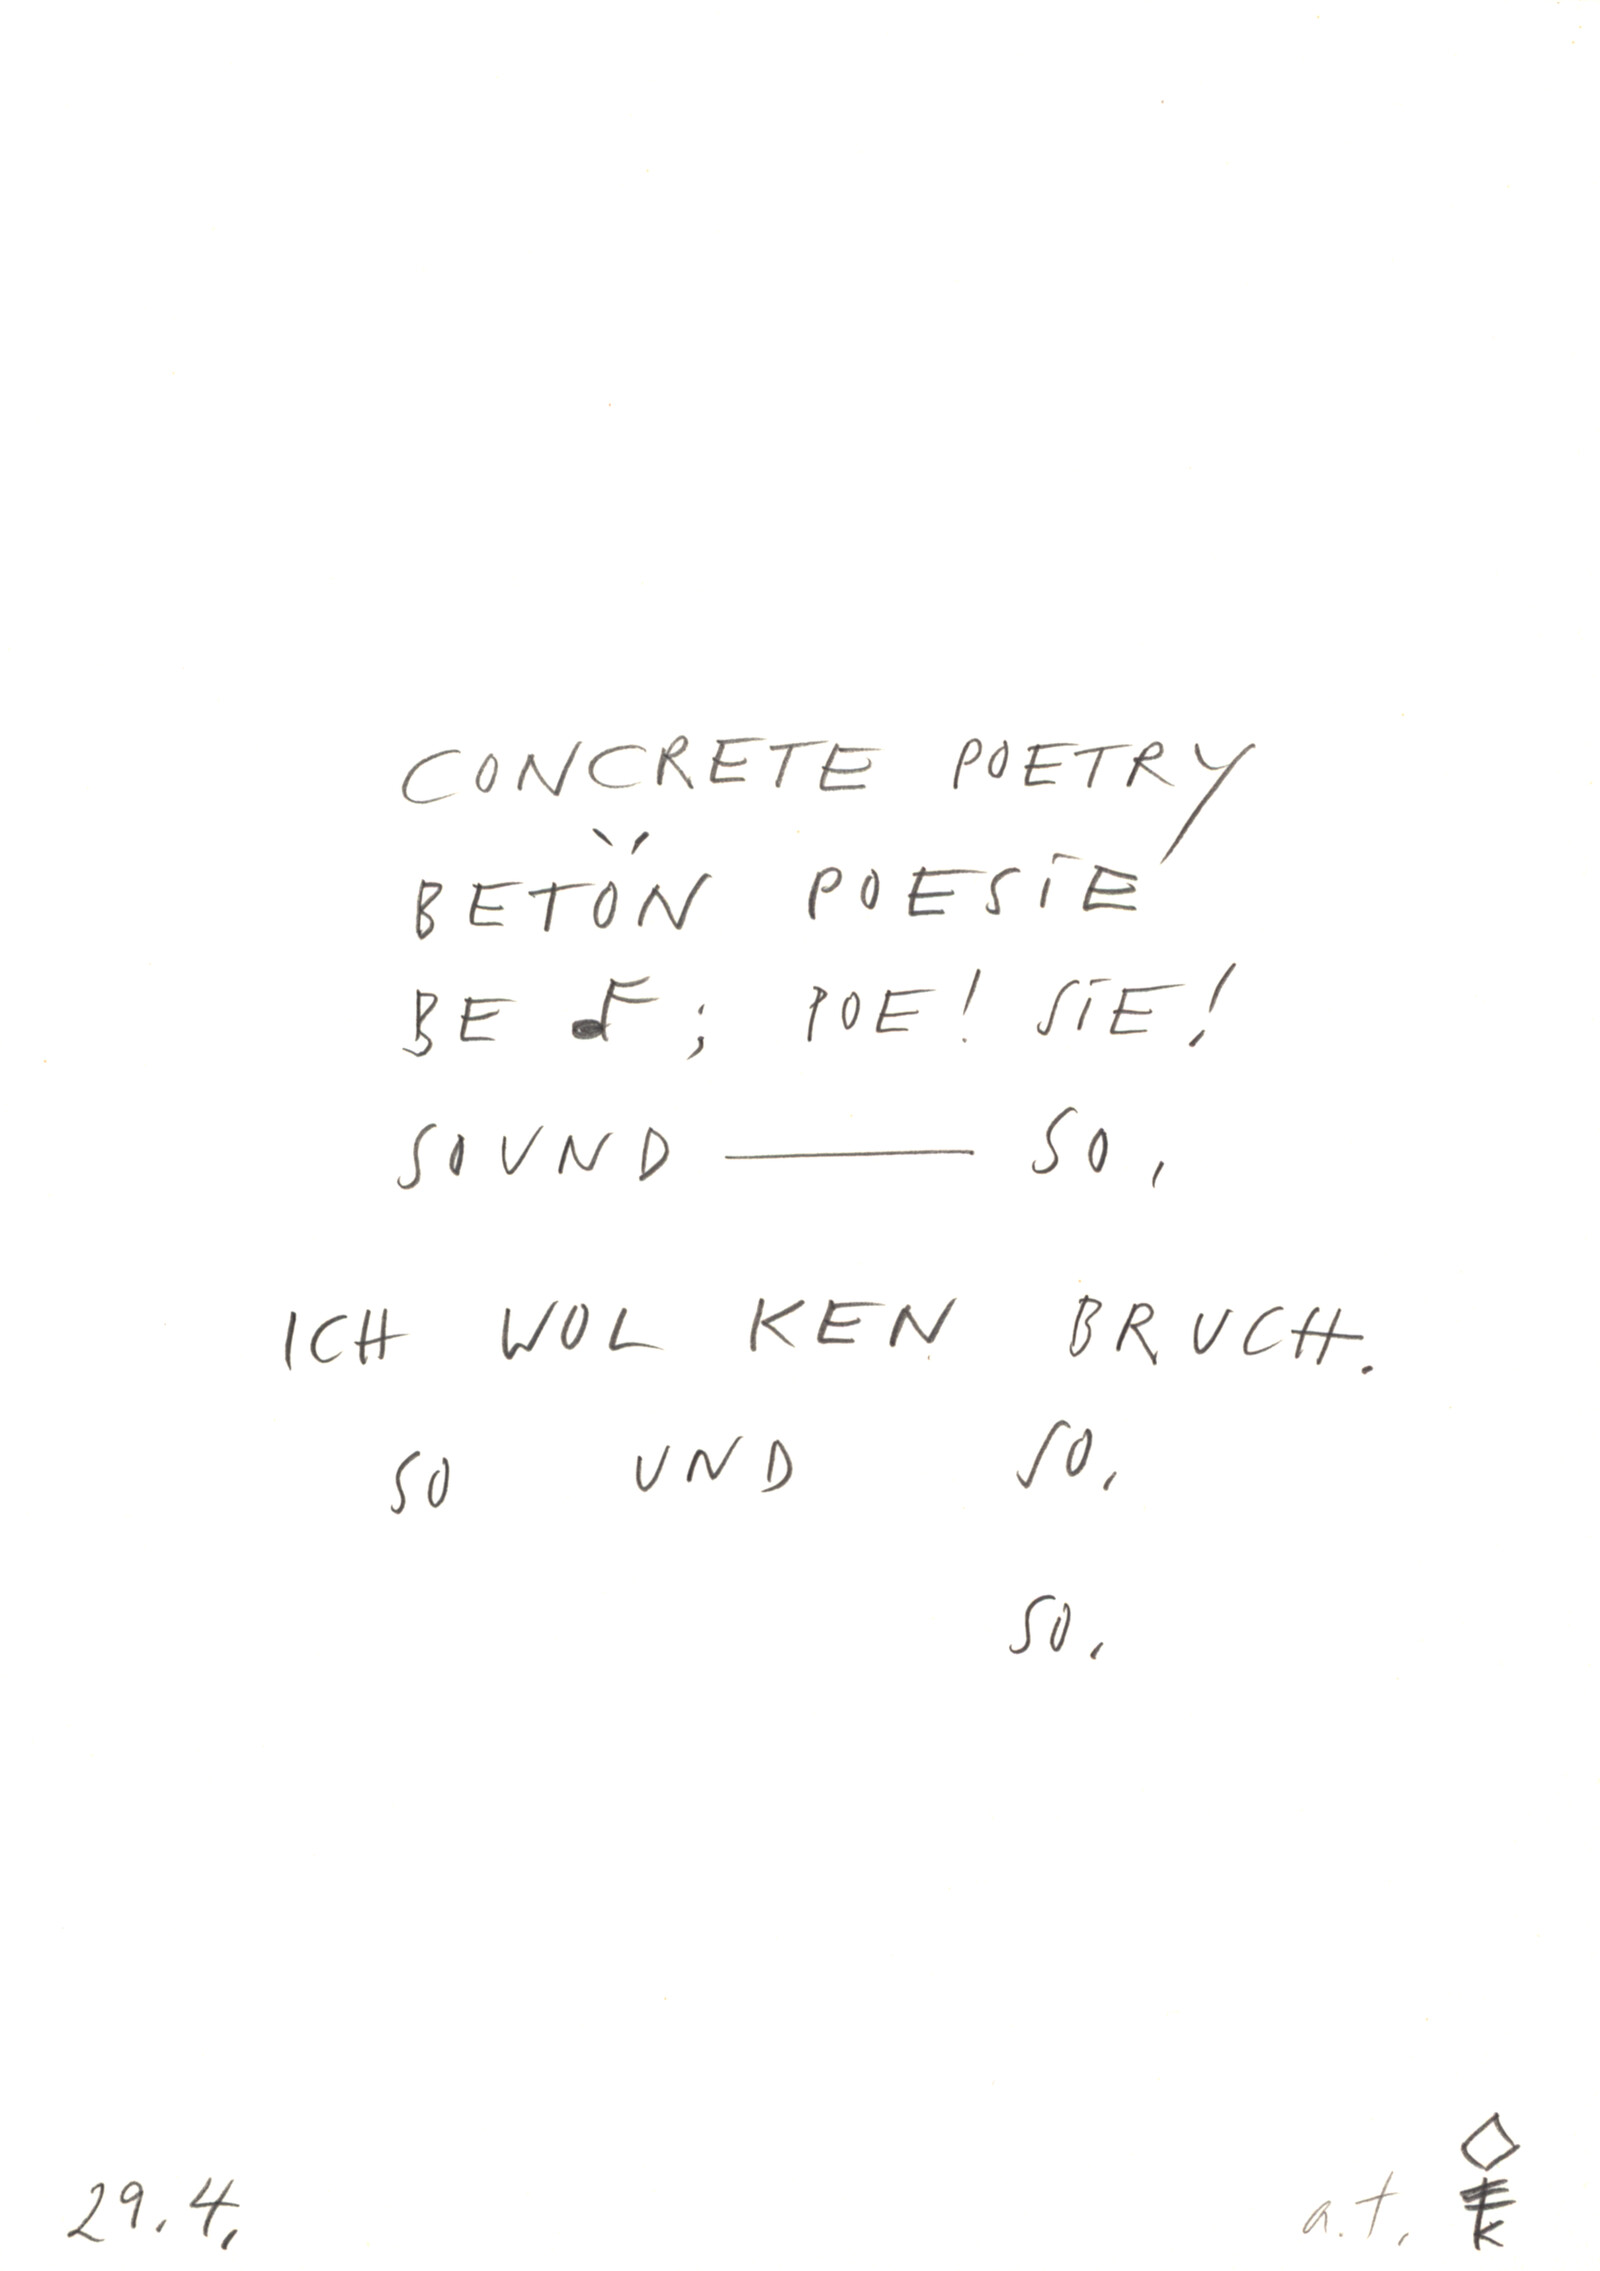 CONCRETE POETRY
BETÖN POESIE
BE ♪; POE! SIE!
SOUND — SO.
ICH WOL KEN BRUCH.
SO UND SO.
SO.
29.4.
a.t.